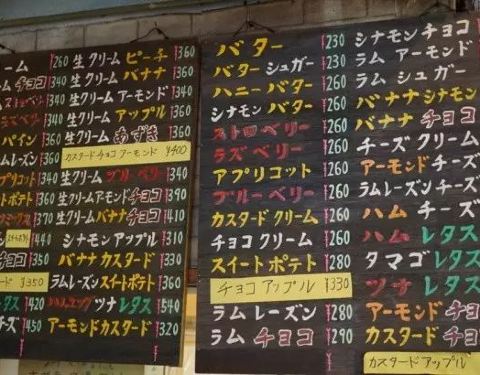 ーム ¥260 生クリーム ピーチ ¥360
ム チョコ ¥340 生クリーム バナナ ¥360
ム ストロベリー ¥340 生クリーム アーモンド ¥340
ラズベリー ¥340 生クリーム アップル ¥360
パイン ¥360 生クリーム あずき ¥340
ムレーズン ¥360 カスタード チョコ アーモンド ¥400
プリコット ¥340 生クリーム ブルーベリー ¥340
トポテト ¥360 生クリームアーモンドチョコ ¥390
¥370 生クリームバナナチョコ ¥410
¥440 シナモンアップル ¥310
チョコ ¥350 バナナカスタード ¥330
ード ¥350 ラムレーズンスイートポテト ¥360
レタス ¥420 ハムエッグ ツナ レタス ¥540
チーズ ¥450 アーモンドカスタード ¥320
バター ¥230
バター シュガー ¥230
ハニー バター ¥260
シナモン バター ¥260
ストロベリー ¥260
ラズベリー ¥260
アプリコット ¥260
ブルーベリー ¥260
カスタード クリーム ¥260
チョコ クリーム ¥260
スイートポテト ¥280
チョコ アップル ¥330
ラム レーズン ¥280
ラム チョコ ¥290
シナモン チョコ
ラム アーモンド
ラム シュガー
バナナ シナモン
バナナ チョコ
チーズ クリーム
アーモンド チーズ
ラムレーズン チーズ
ハム チーズ
ハム レタス
タマゴ レタス
ツナ レタス
アーモンド チョコ
カスタード チョコ
カスタード アップル